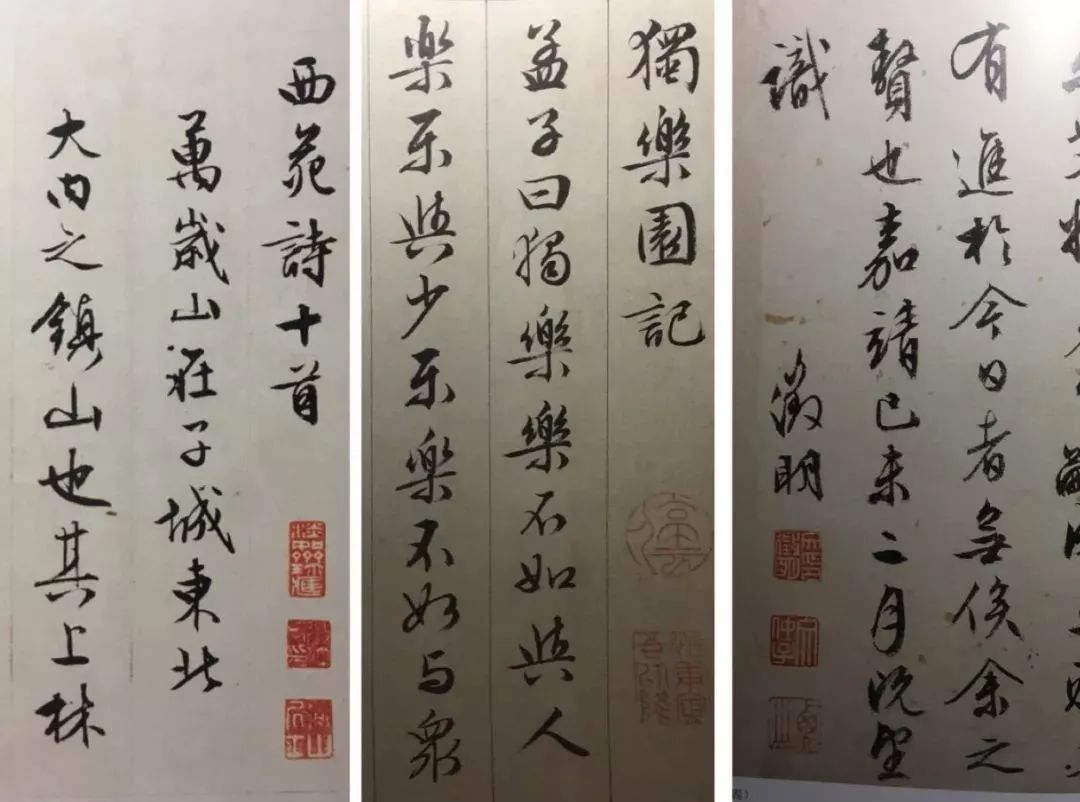 西苑詩十首
萬歲山在子城東北
大内之鎮山也其上林
獨樂園記
孟子曰獨樂樂不如與人
樂樂與少樂樂不如与衆
有進於今日者無俟余之
贅也嘉靖己未二月既望
識 徵明